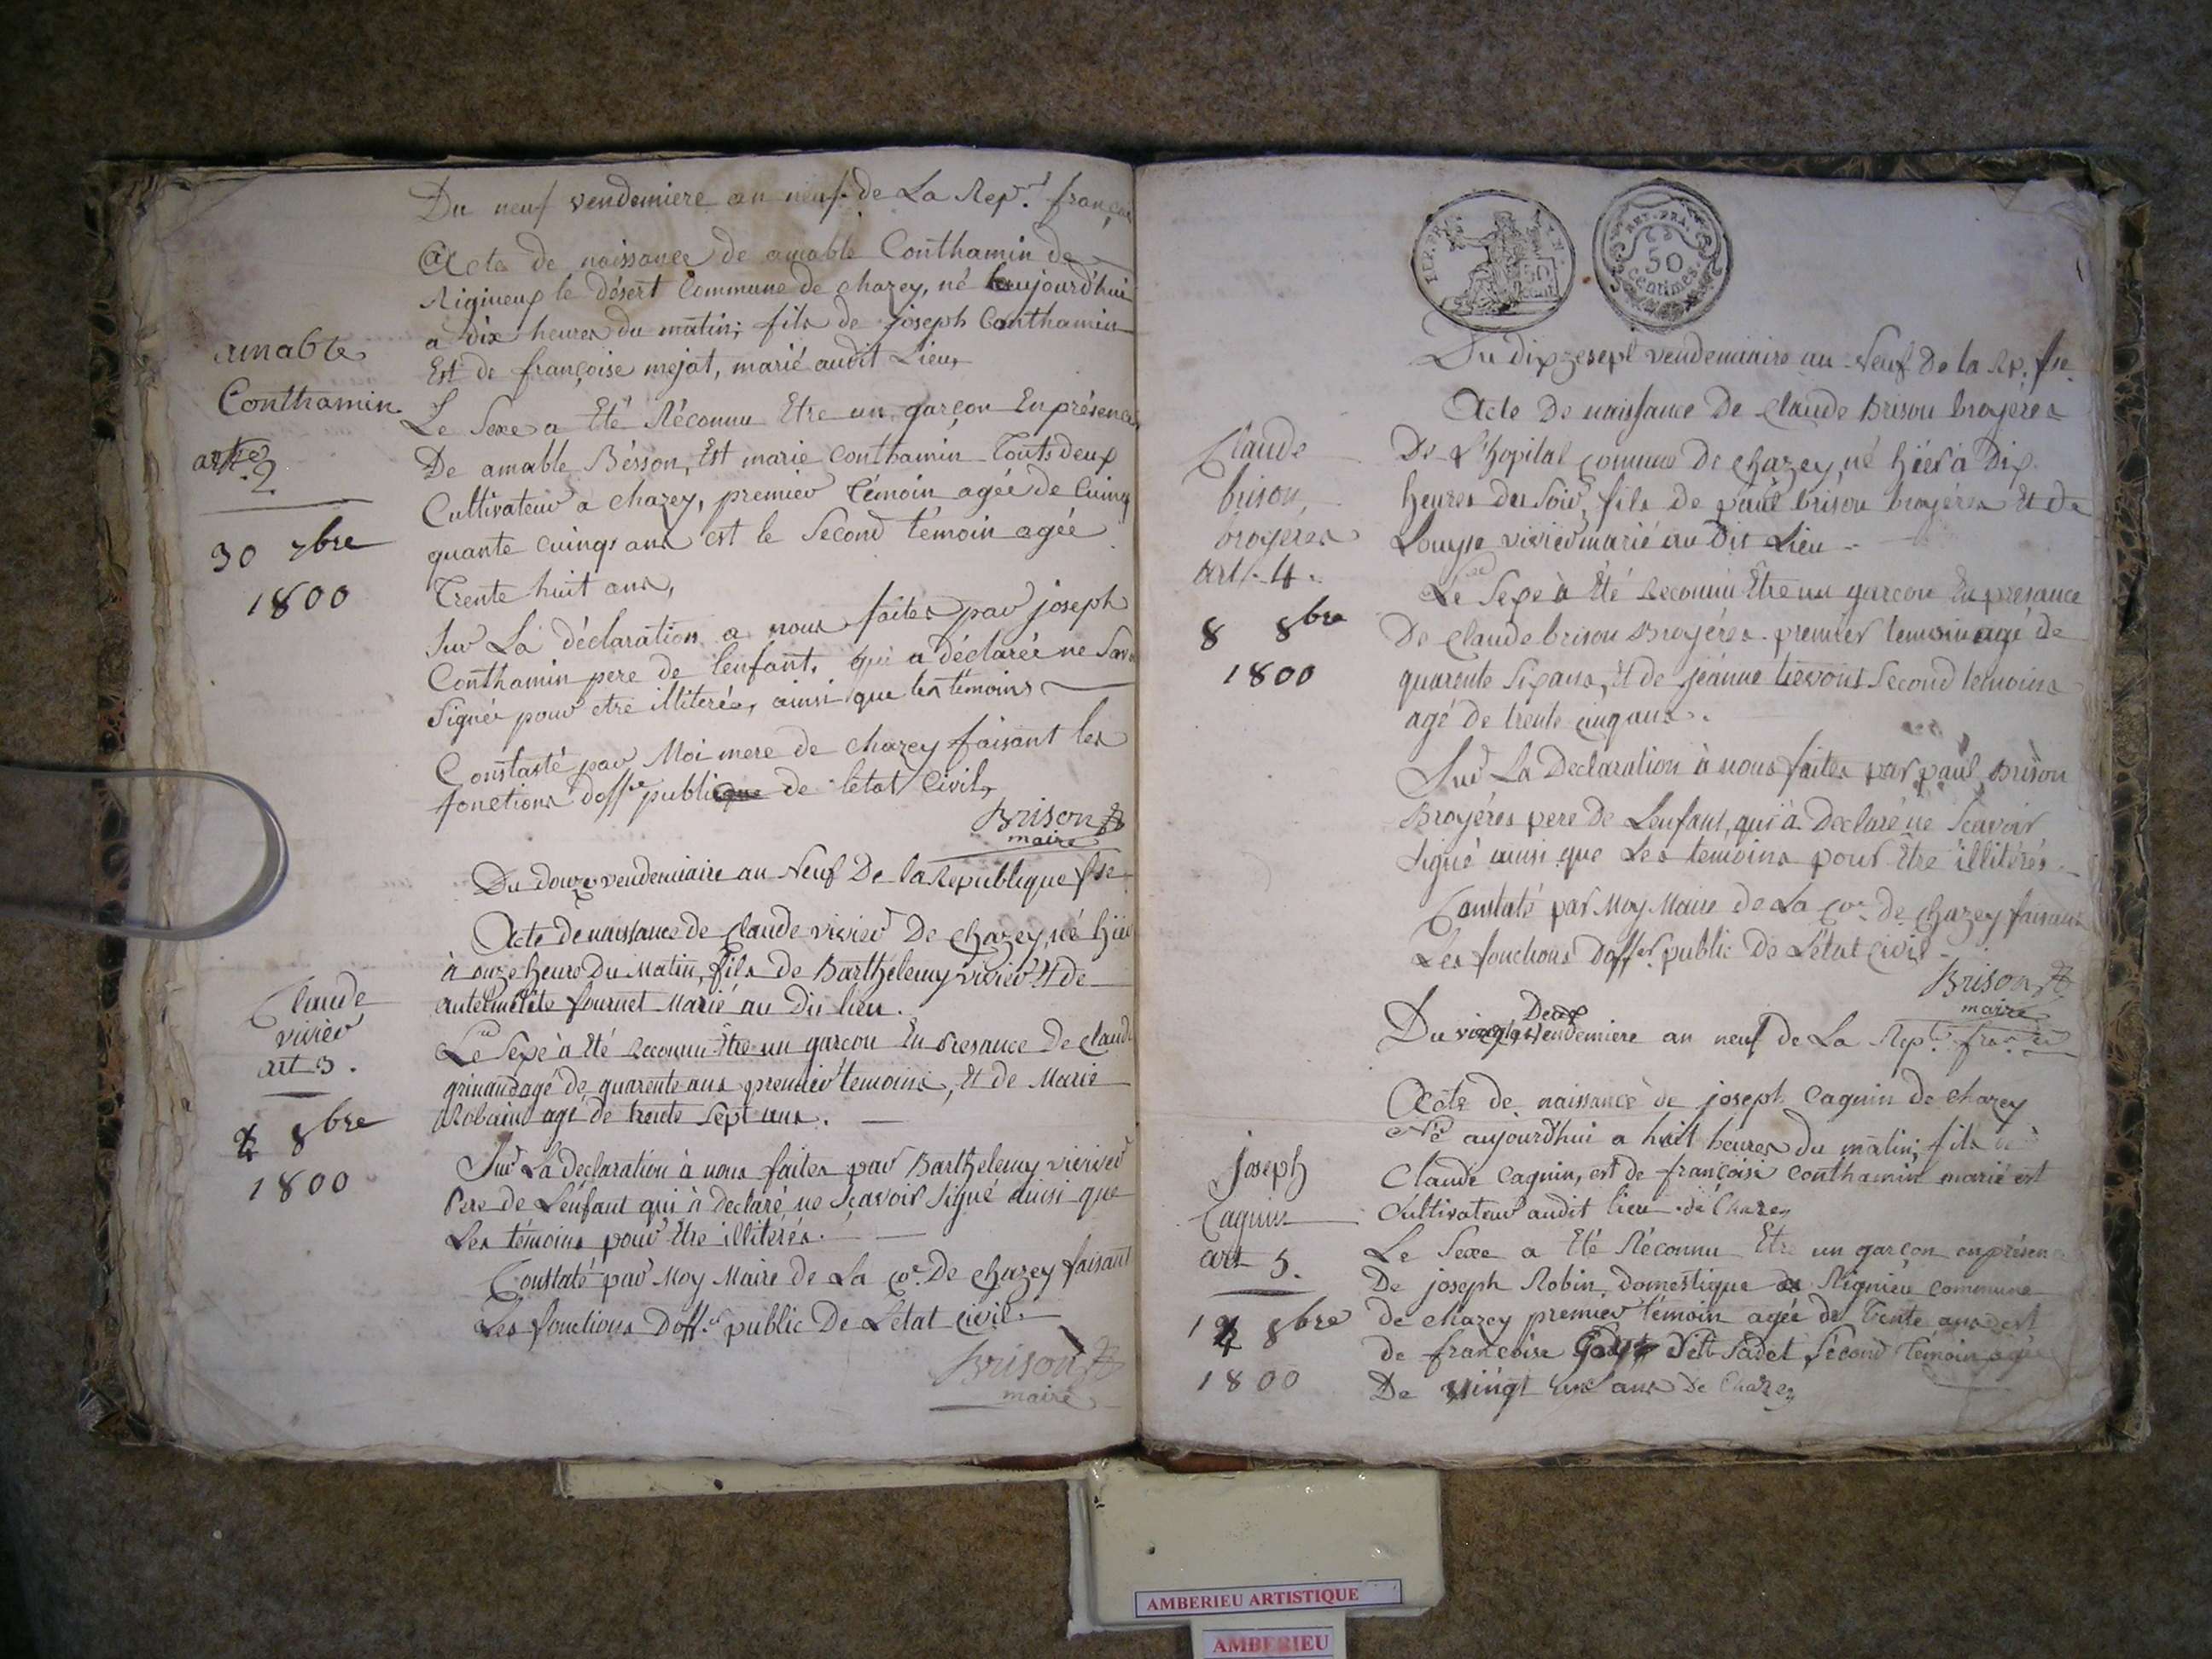 Du neuf vendemiere an neuf de La Rep.^e françai
Acte de naissance de amable Conthamin de
Rigineux le désert Commune de chazey, né aujourd'hui
a dix heures du matin; fils de joseph Conthamin
Est de françoise mejat, marié audit Lieu,
amable
Conthamin
art. 2
30 7bre
1800
Le Sexe a Eté Réconnu Etre un garçon En présence
De amable Bésson, Est marie Conthamin Touts deux
Cultivateur a chazey, premier témoin agée de Cuinq
quante cuinqs ans est le Second témoin agée
Trente huit ans,
Sur La déclaration a nous faites par joseph
Conthamin pere de l'enfant, qui a déclarée ne Savoi
Signée pour etre illiterés, ainsi que les témoins
Constasté par Moi mere de chazey faisant les
fonctions d'off.^er public de l'etat Civil,
Brison
maire
Du douze vendemiaire an Neuf De la Republique fse
Acte de naissance de Claude vivier De Chazey, né hier
à onze heure Du Matin, fils de Barthelemy vivier Et de
fournet Marié au Dit lieu.
Claude
vivier
art 3.
8bre
1800
Le Sexe à Eté Reconnu Etre un garcon En presance De Claude
agé de quarente ans premier temoins, Et de Marie
Robain agé de trente Sept ans.
Sur La declaration à nous faites par Barthelemy vivier
Pere de L'enfant qui à declaré ne Sçavoir Signé ainsi que
Les témoins pour Etre illitérés.
Constaté par Moy Maire de La Co.^e De Chazey faisant
Les fonctions D'off.^er public De L'état Civil.
Brison
maire
REP. FRA.
50
Centimes.
Du dixzesept vendemiaire an Neuf De la Rp. fse
Acte De naissance De Claude Brison broyeres
De L'hopital commune De Chazey, né hier à Dix
heures du Soir, fils de paul brison broyéres Et de
Louyse vivier marié au Dit Lieu
Claude
brison,
broyeres
art. 4.
8 8bre
1800
Le Sexe à Eté Reconnu Etre un garcon En presance
De Claude brison Broyéres premier temoin agé de
quarente Six ans, Et de jeanne Second temoins
agé de trente cinq ans.
Sur La Declaration à nous faites par paul Brison
Broyéres pere De L'enfant, qui à Declaré ne Scavoir
Signé ainsi que Les temoins pour Etre illitérés.
Constaté par Moy Maire de La Co.^e de Chazey faisant
Les fonctions D'off.^er public De L'état Civil
Brison
maire
Deux
Du vingt vendemiere an neuf de La Rep.^e
Acte de naissance de joseph Cagnin de Chazey
Né aujourd'hui a huit heures du matin; fils de
Claude Cagnin, est de françoise Conthamin marié est
Cultivateur audit lieu de Chazey
joseph
Cagnin
art 5.
8bre
1800
Le Sexe a Eté Réconnu Etre un garçon en présence
De joseph Robin domestique de Rignieu commune
de chazey premier témoin agée de Trente ans est
de françoise dit Second témoin agée
De vingt ans De Chazey
AMBERIEU ARTISTIQUE
AMBERIEU